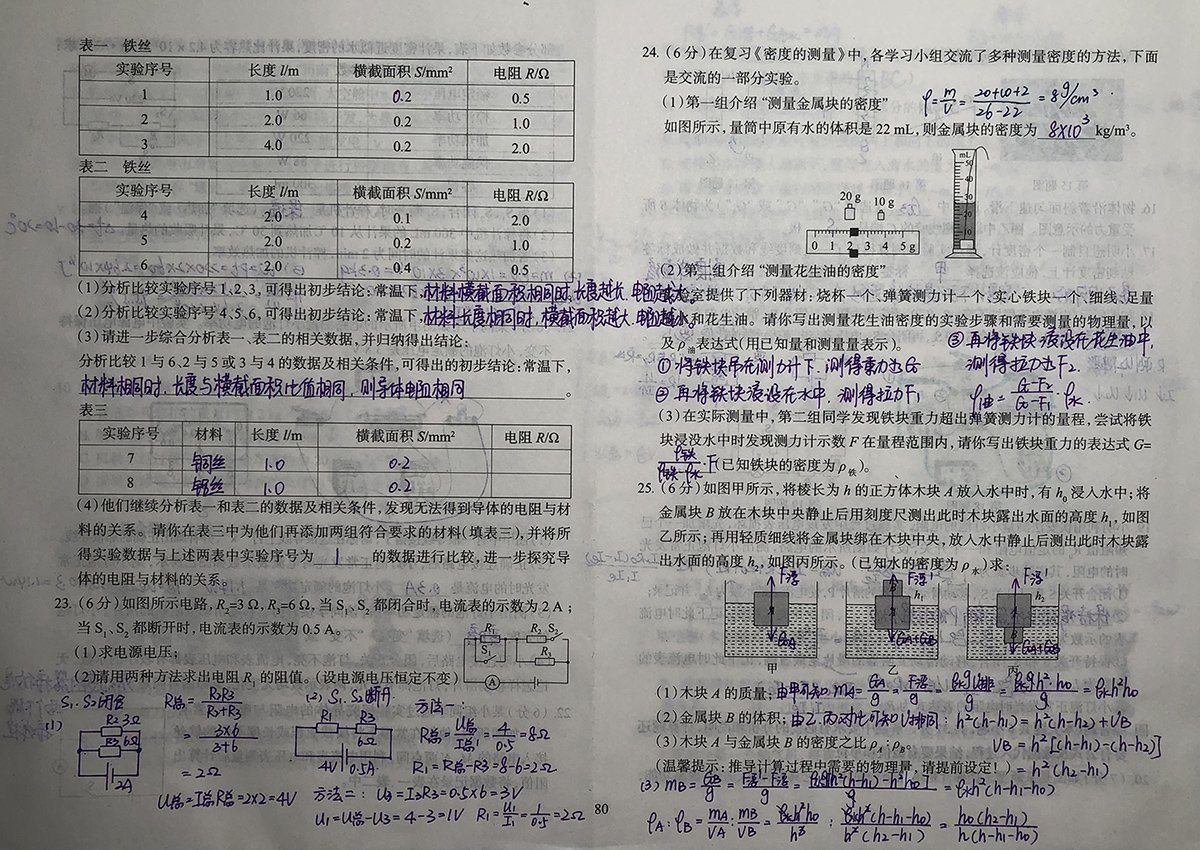 表一 铁丝
实验序号 长度 l/m 横截面积 S/mm² 电阻 R/Ω
1 1.0 0.2 0.5
2 2.0 0.2 1.0
3 4.0 0.2 2.0
表二 铁丝
实验序号 长度 l/m 横截面积 S/mm² 电阻 R/Ω
4 2.0 0.1 2.0
5 2.0 0.2 1.0
6 2.0 0.4 0.5
(1)分析比较实验序号1、2、3,可得出初步结论:常温下,材料横截面积相同时,长度越长,电阻越大。
(2)分析比较实验序号4、5、6,可得出初步结论:常温下,材料长度相同时,横截面积越大,电阻越小。
(3)请进一步综合分析表一、表二的相关数据,并归纳得出结论:
分析比较1与6、2与5或3与4的数据及相关条件,可得出的初步结论:常温下,
材料相同时,长度与横截面积比值相同,则导体电阻相同。
表三
实验序号 材料 长度 l/m 横截面积 S/mm² 电阻 R/Ω
7 铜丝 1.0 0.2
8 铝丝 1.0 0.2
(4)他们继续分析表一和表二的数据及相关条件,发现无法得到导体的电阻与材
料的关系。请你在表三中为他们再添加两组符合要求的材料(填表三),并将所
得实验数据与上述两表中实验序号为 1 的数据进行比较,进一步探究导
体的电阻与材料的关系。
23.(6分)如图所示电路,R₂=3 Ω,R₃=6 Ω,当S₁、S₂都闭合时,电流表的示数为2 A;
当S₁、S₂都断开时,电流表的示数为0.5 A。
(1)求电源电压;
(2)请用两种方法求出电阻R₁的阻值。(设电源电压恒定不变)
R₁ R₂ S₂
S₁ R₃
A
S₁.S₂闭合
(1)
R₂ 3Ω
R₃ 6Ω
2A
R总=R₂R₃/(R₂+R₃)
=3×6/(3+6)
=2Ω
U总=I总R总=2×2=4V
(2) S₁.S₂断开
R₁ R₃
6Ω
4V 0.5A
方法一:
R总=U总/I总'=4/0.5=8Ω
R₁=R总-R₃=8-6=2Ω
方法二:U₃=I₃R₃=0.5×6=3V
U₁=U总-U₃=4-3=1V R₁=U₁/I₁=1/0.5=2Ω
80
24.(6分)在复习《密度的测量》中,各学习小组交流了多种测量密度的方法,下面
是交流的一部分实验。
(1)第一组介绍“测量金属块的密度”
ρ=m/V=(20+10+2)/(26-22)=8g/cm³.
如图所示,量筒中原有水的体积是22 mL,则金属块的密度为 8×10³ kg/m³。
20 g 10 g
0 1 2 3 4 5 g
mL
50
40
30
20
10
(2)第二组介绍“测量花生油的密度”
实验室提供了下列器材:烧杯一个、弹簧测力计一个、实心铁块一个、细线、足量
水和花生油。请你写出测量花生油密度的实验步骤和需要测量的物理量,以
及ρ油表达式(用已知量和测量量表示)。
①将铁块吊在测力计下,测得重力为G
②再将铁块浸没在水中,测得拉力F₁
③再将铁块浸没在花生油中,
测得拉力为F₂.
ρ油=(G-F₂)/(G-F₁)·ρ水.
(3)在实际测量中,第二组同学发现铁块重力超出弹簧测力计的量程,尝试将铁
块浸没水中时发现测力计示数F在量程范围内,请你写出铁块重力的表达式G=
ρ铁/(ρ铁-ρ水)·F(已知铁块的密度为ρ铁)。
25.(6分)如图甲所示,将棱长为h的正方体木块A放入水中时,有h₀浸入水中;将
金属块B放在木块中央静止后用刻度尺测出此时木块露出水面的高度h₁,如图
乙所示;再用轻质细线将金属块绑在木块中央,放入水中静止后测出此时木块露
出水面的高度h₂,如图丙所示。(已知水的密度为ρ水)求:
F浮 F浮' F浮'
B h₁ h₂
A A A
B
GA GA+GB GA+GB
甲 乙 丙
(1)木块A的质量;由甲可知 mA=GA/g=F浮/g=ρ水gV排/g=ρ水gh²h₀/g=ρ水h²h₀
(2)金属块B的体积;由乙.丙对比可知V排同:h²(h-h₁)=h²(h-h₂)+VB
(3)木块A与金属块B的密度之比ρA:ρB。 VB=h²[(h-h₁)-(h-h₂)]
(温馨提示:推导计算过程中需要的物理量,请提前设定!)=h²(h₂-h₁)
(3) mB=GB/g=(F浮'-F浮)/g=ρ水g[h²(h-h₁)-h²h₀]/g=ρ水h²(h-h₁-h₀)
ρA:ρB=mA/VA:mB/VB=ρ水h²h₀/h³:ρ水h²(h-h₁-h₀)/h²(h₂-h₁)=h₀(h₂-h₁)/h(h-h₁-h₀)